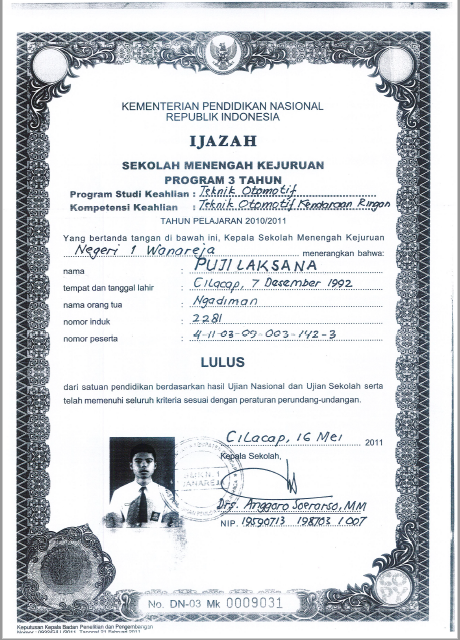 KEMENTERIAN PENDIDIKAN NASIONAL
REPUBLIK INDONESIA
IJAZAH
SEKOLAH MENENGAH KEJURUAN
PROGRAM 3 TAHUN
Program Studi Keahlian : Teknik Otomotif
Kompetensi Keahlian : Teknik Otomotif Kendaraan Ringan
TAHUN PELAJARAN 2010/2011
Yang bertanda tangan di bawah ini, Kepala Sekolah Menengah Kejuruan
Negeri 1 Wanareja menerangkan bahwa:
nama : PUJI LAKSANA
tempat dan tanggal lahir : Cilacap, 7 Desember 1992
nama orang tua : Ngadiman
nomor induk : 2281
nomor peserta : 4-11-03-09-003-142-3
LULUS
dari satuan pendidikan berdasarkan hasil Ujian Nasional dan Ujian Sekolah serta
telah memenuhi seluruh kriteria sesuai dengan peraturan perundang-undangan.
Cilacap, 16 Mei 2011
Kepala Sekolah,
Drs. Anggoro Soerarso, MM
NIP. 19590713 198703 1 007
No. DN-03 Mk 0009031
Keputusan Kepala Badan Penelitian dan Pengembangan